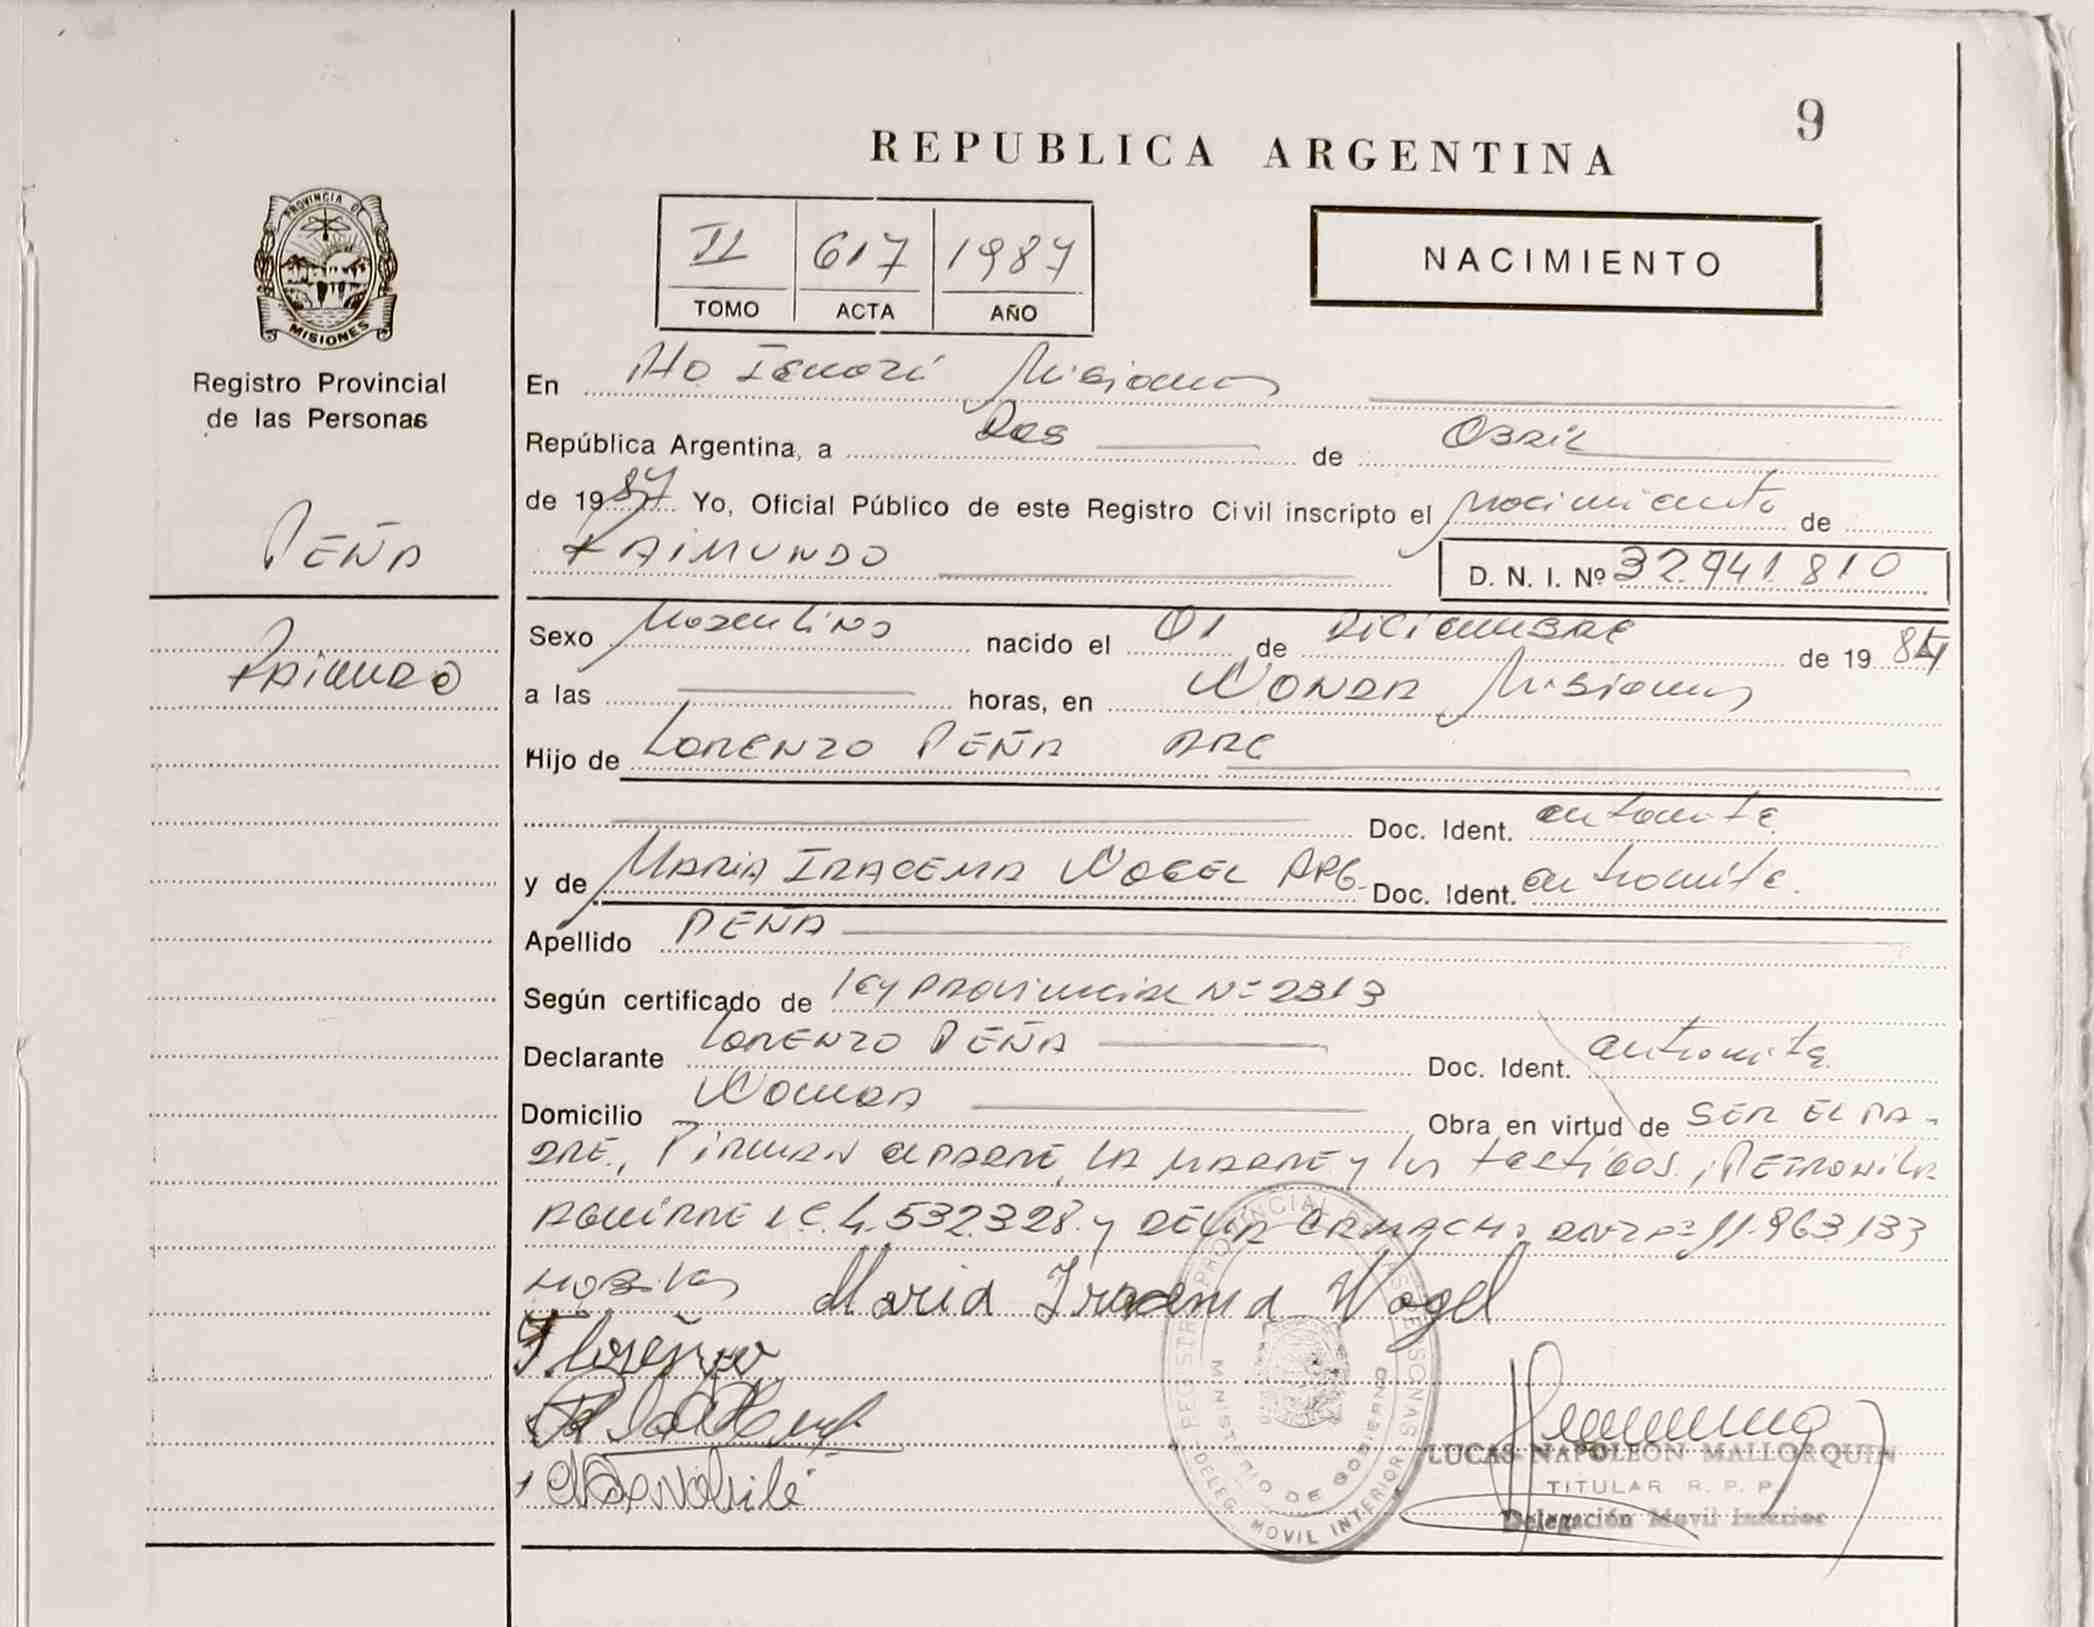 9
REPUBLICA ARGENTINA
PROVINCIA DE
MISIONES
Registro Provincial
de las Personas
II 617 1987
TOMO ACTA AÑO
NACIMIENTO
En Alto Misiones
República Argentina, a Dos de Abril
de 1987 Yo, Oficial Público de este Registro Civil inscripto el nacimiento de
RAIMUNDO D. N. I. Nº 32.941.810
PEÑA
Raimundo
Sexo Masculino nacido el 01 de Diciembre de 1984
a las horas, en Misiones
Hijo de LORENZO PEÑA ARG
Doc. Ident. en tramite
y de MARIA IRACEMA WOGEL ARG. Doc. Ident. en tramite.
Apellido PEÑA
Según certificado de ley provincial Nº 2313
Declarante LORENZO PEÑA Doc. Ident. en tramite
Domicilio Obra en virtud de SER EL PA-
DRE, Firman el padre, la madre y los testigos: PETRONILA
AGUIRRE L.C. 4.532.328 y 11.963.133
Maria Iracema Wogel
REGISTRO PROVINCIAL DE LAS PERSONAS
MINISTERIO DE GOBIERNO
DELEG. MOVIL INTERIOR
LUCAS NAPOLEON MALLORQUIN
TITULAR R. P. P.
Delegación Movil Interior